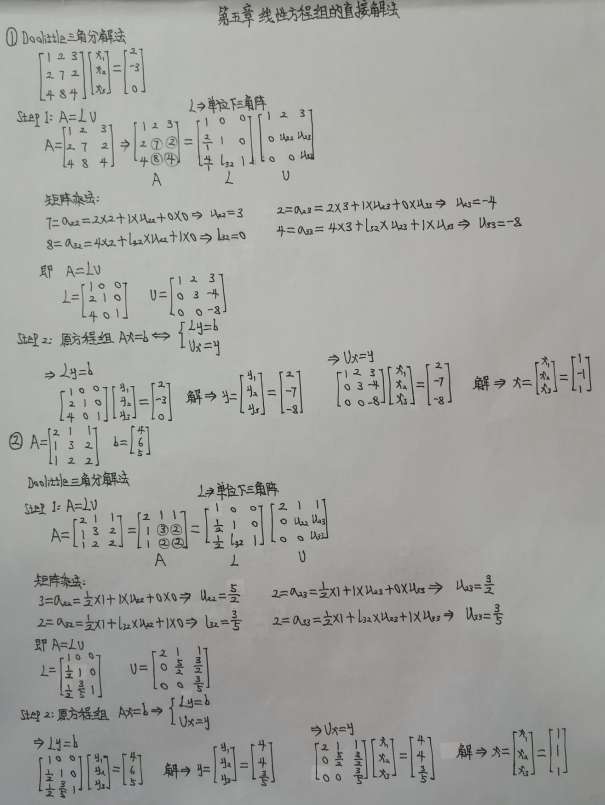 第五章 线性方程组的直接解法
① Doolittle三角分解法
[1 2 3; 2 7 2; 4 8 4][x₁; x₂; x₃]=[2; -3; 0]
Step 1: A=LU L→单位下三角阵
A=[1 2 3; 2 7 2; 4 8 4] ⇒ [1 2 3; 2 ⑦ ②; 4 ⑧ ④] = [1 0 0; 2/1 1 0; 4/1 l₃₂ 1][1 2 3; 0 u₂₂ u₂₃; 0 0 u₃₃]
A L U
矩阵乘法:
7=a₂₂=2×2+1×u₂₂+0×0⇒ u₂₂=3 2=a₂₃=2×3+1×u₂₃+0×u₃₃⇒ u₂₃=-4
8=a₃₂=4×2+l₃₂×u₂₂+1×0⇒ l₃₂=0 4=a₃₃=4×3+l₃₂×u₂₃+1×u₃₃⇒ u₃₃=-8
即 A=LU
L=[1 0 0; 2 1 0; 4 0 1] U=[1 2 3; 0 3 -4; 0 0 -8]
Step 2: 原方程组 Ax=b⇔{Ly=b; Ux=y
⇒Ly=b ⇒Ux=y
[1 0 0; 2 1 0; 4 0 1][y₁; y₂; y₃]=[2; -3; 0] 解⇒y=[y₁; y₂; y₃]=[2; -7; -8] [1 2 3; 0 3 -4; 0 0 -8][x₁; x₂; x₃]=[2; -7; -8] 解⇒x=[x₁; x₂; x₃]=[1; -1; 1]
② A=[2 1 1; 1 3 2; 1 2 2] b=[4; 6; 5]
Doolittle三角分解法
Step 1: A=LU L→单位下三角阵
A=[2 1 1; 1 3 2; 1 2 2]=[2 1 1; 1 ③ ②; 1 ② ②]=[1 0 0; 1/2 1 0; 1/2 l₃₂ 1][2 1 1; 0 u₂₂ u₂₃; 0 0 u₃₃]
A L U
矩阵乘法:
3=a₂₂=1/2×1+1×u₂₂+0×0⇒ u₂₂=5/2 2=a₂₃=1/2×1+1×u₂₃+0×u₃₃⇒ u₂₃=3/2
2=a₃₂=1/2×1+l₃₂×u₂₂+1×0⇒ l₃₂=3/5 2=a₃₃=1/2×1+l₃₂×u₂₃+1×u₃₃⇒ u₃₃=3/5
即 A=LU
L=[1 0 0; 1/2 1 0; 1/2 3/5 1] U=[2 1 1; 0 5/2 3/2; 0 0 3/5]
Step 2: 原方程组 Ax=b⇒{Ly=b; Ux=y
⇒Ly=b ⇒Ux=y
[1 0 0; 1/2 1 0; 1/2 3/5 1][y₁; y₂; y₃]=[4; 6; 5] 解⇒y=[y₁; y₂; y₃]=[4; 4; 3/5] [2 1 1; 0 5/2 3/2; 0 0 3/5][x₁; x₂; x₃]=[4; 4; 3/5] 解⇒x=[x₁; x₂; x₃]=[1; 1; 1]